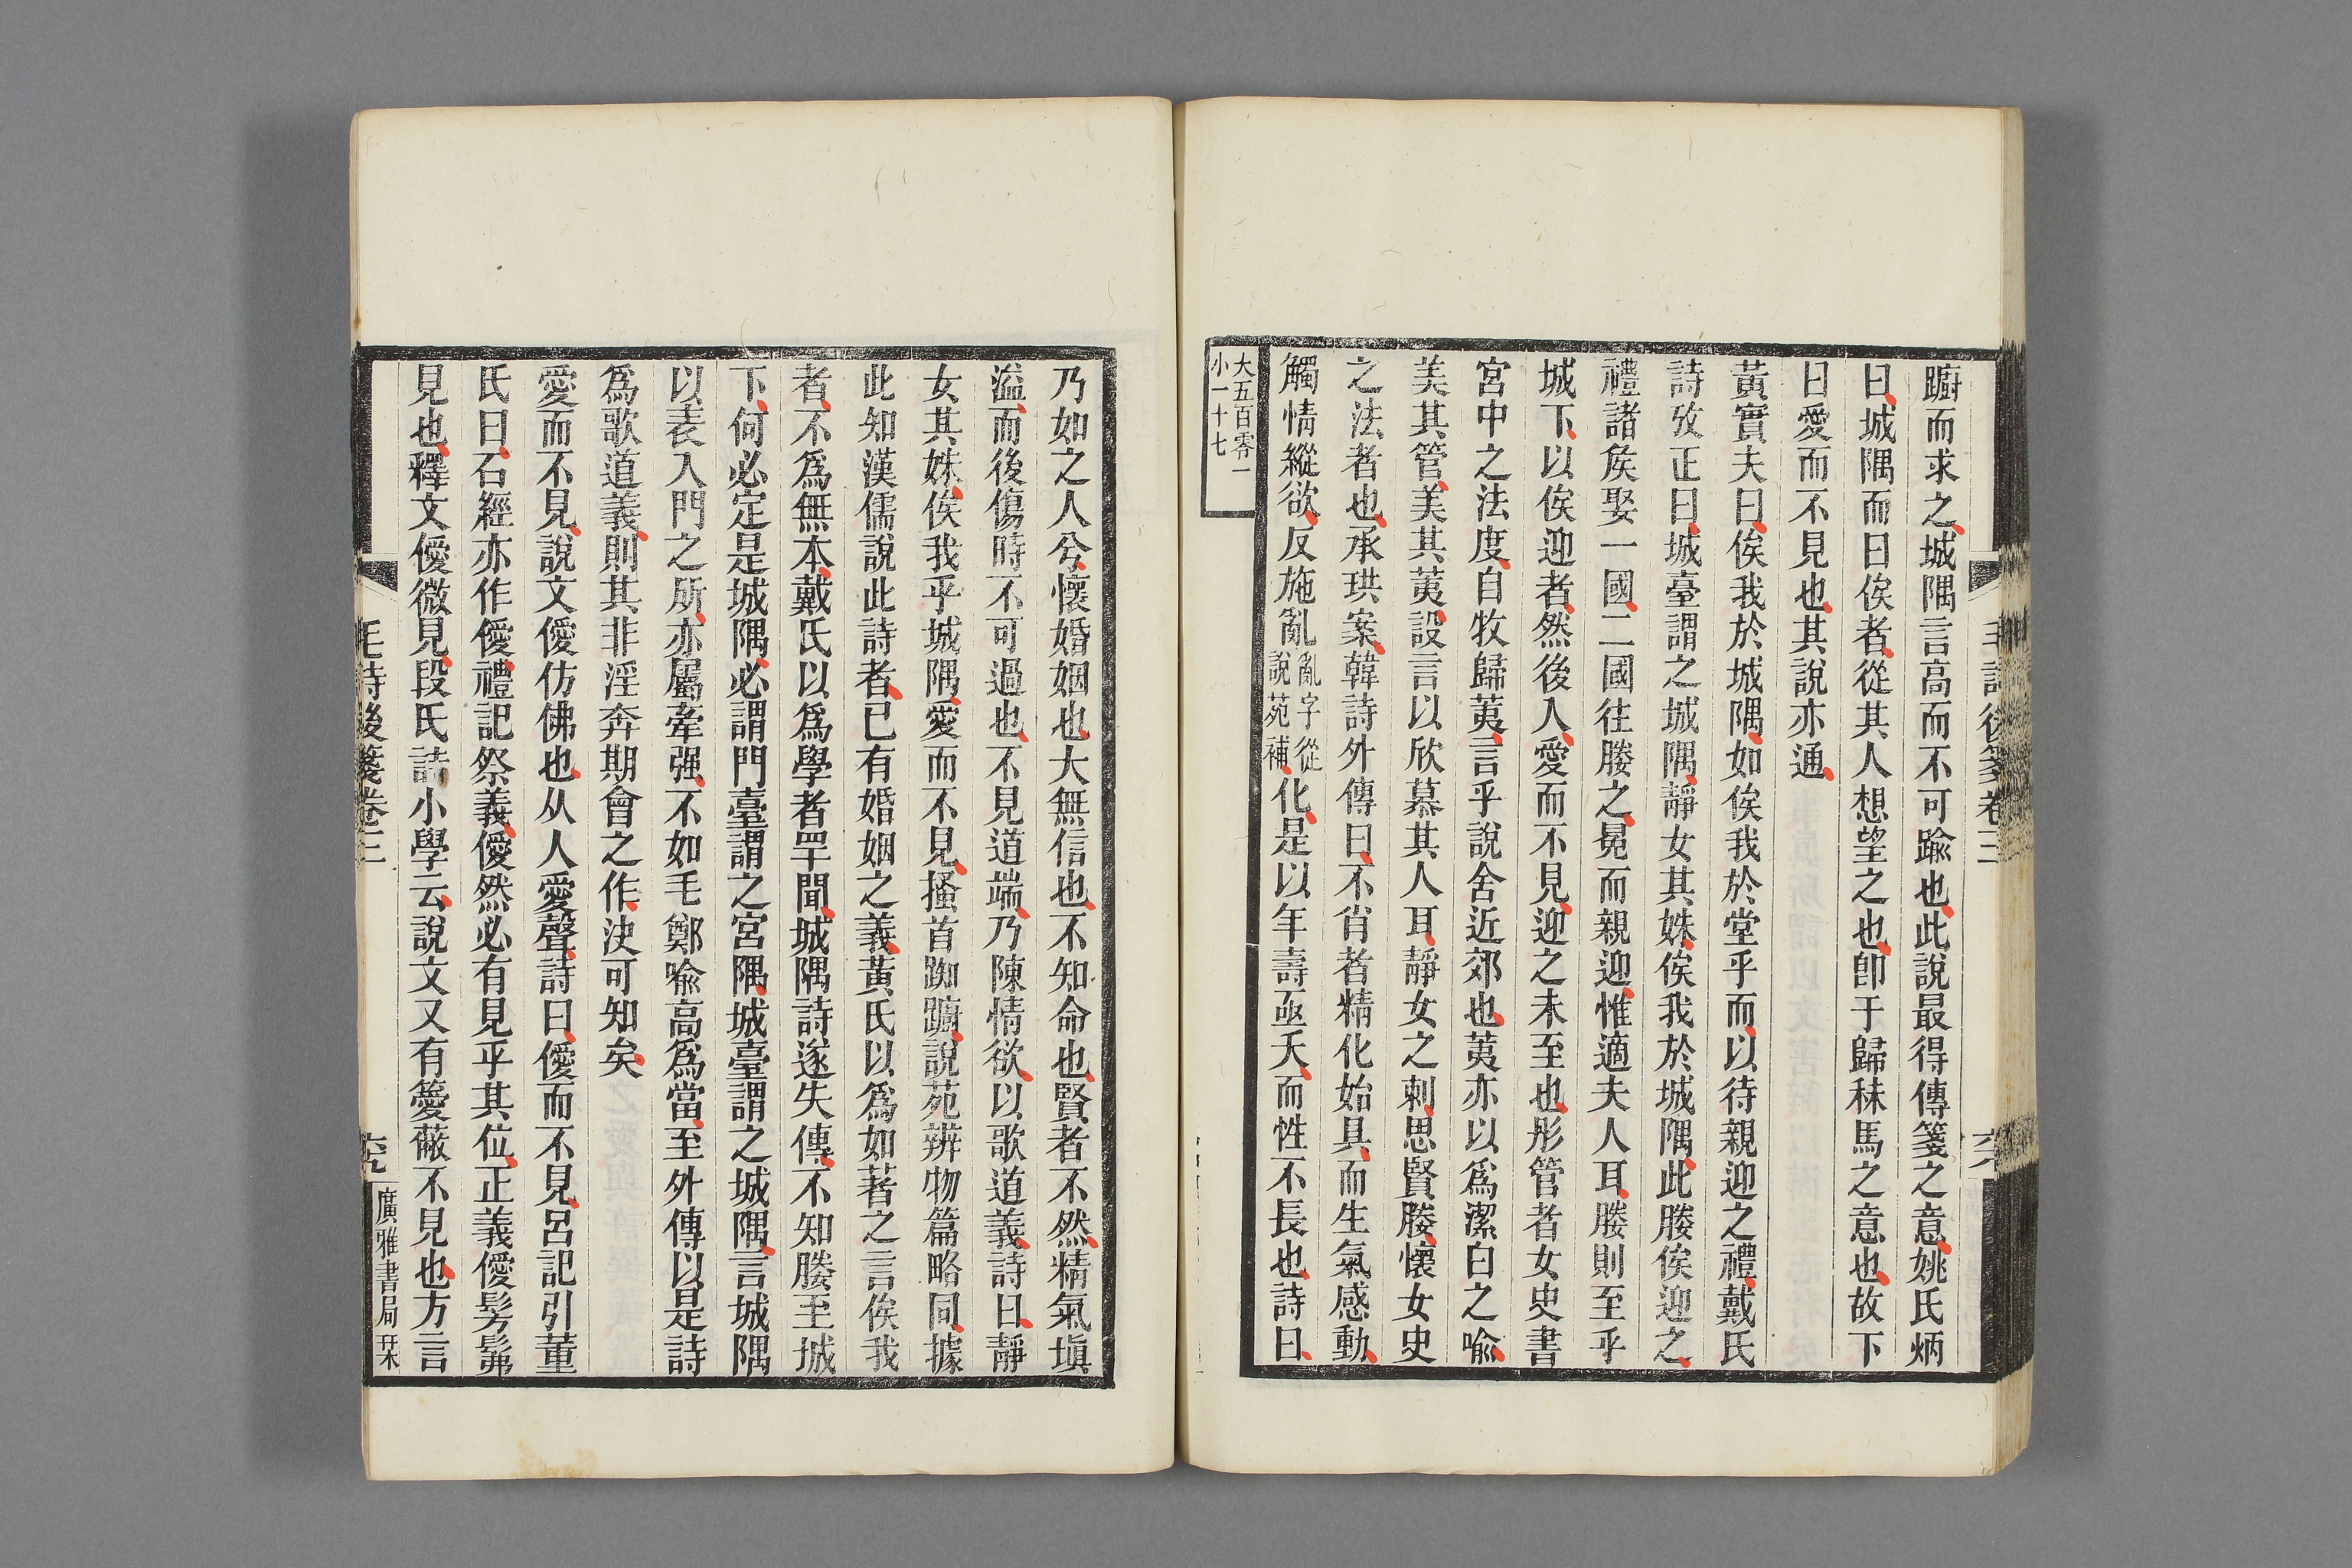 蹰而求之城隅言高而不可踰也此說最得傳箋之意姚氏炳
曰城隅而曰俟者從其人想望之也卽于歸秣馬之意也故下
曰愛而不見也其說亦通
黃實夫曰俟我於城隅如俟我於堂乎而以待親迎之禮戴氏
詩攷正曰城臺謂之城隅靜女其姝俟我於城隅此媵俟迎之
禮諸矦娶一國二國往媵之冕而親迎惟適夫人耳媵則至乎
城下以俟迎者然後入愛而不見迎之未至也彤管者女史書
宮中之法度自牧歸荑言乎說舍近郊也荑亦以爲潔白之喩
美其管美其荑設言以欣慕其人耳靜女之刺思賢媵懷女史
之法者也承珙案韓詩外傳曰不肖者精化始具而生氣感動
觸情縱欲反施亂亂字從說苑補化是以年壽亟夭而性不長也詩曰
大五百零一
小一十七
乃如之人兮懷婚姻也大無信也不知命也賢者不然精氣塡
溢而後傷時不可過也不見道端乃陳情欲以歌道義詩曰靜
女其姝俟我乎城隅愛而不見搔首踟躕說苑辨物篇略同據
此知漢儒說此詩者已有婚姻之義黃氏以爲如著之言俟我
者不爲無本戴氏以爲學者罕聞城隅詩遂失傳不知媵至城
下何必定是城隅必謂門臺謂之宮隅城臺謂之城隅言城隅
以表入門之所亦屬牽强不如毛鄭喩高爲當至外傳以是詩
爲歌道義則其非淫奔期會之作決可知矣
愛而不見說文僾仿佛也从人愛聲詩曰僾而不見呂記引董
氏曰石經亦作僾禮記祭義僾然必有見乎其位正義僾髣髴
見也釋文僾微見段氏詩小學云說文又有薆蔽不見也方言
毛詩後箋卷三
六九
廣雅書局栞